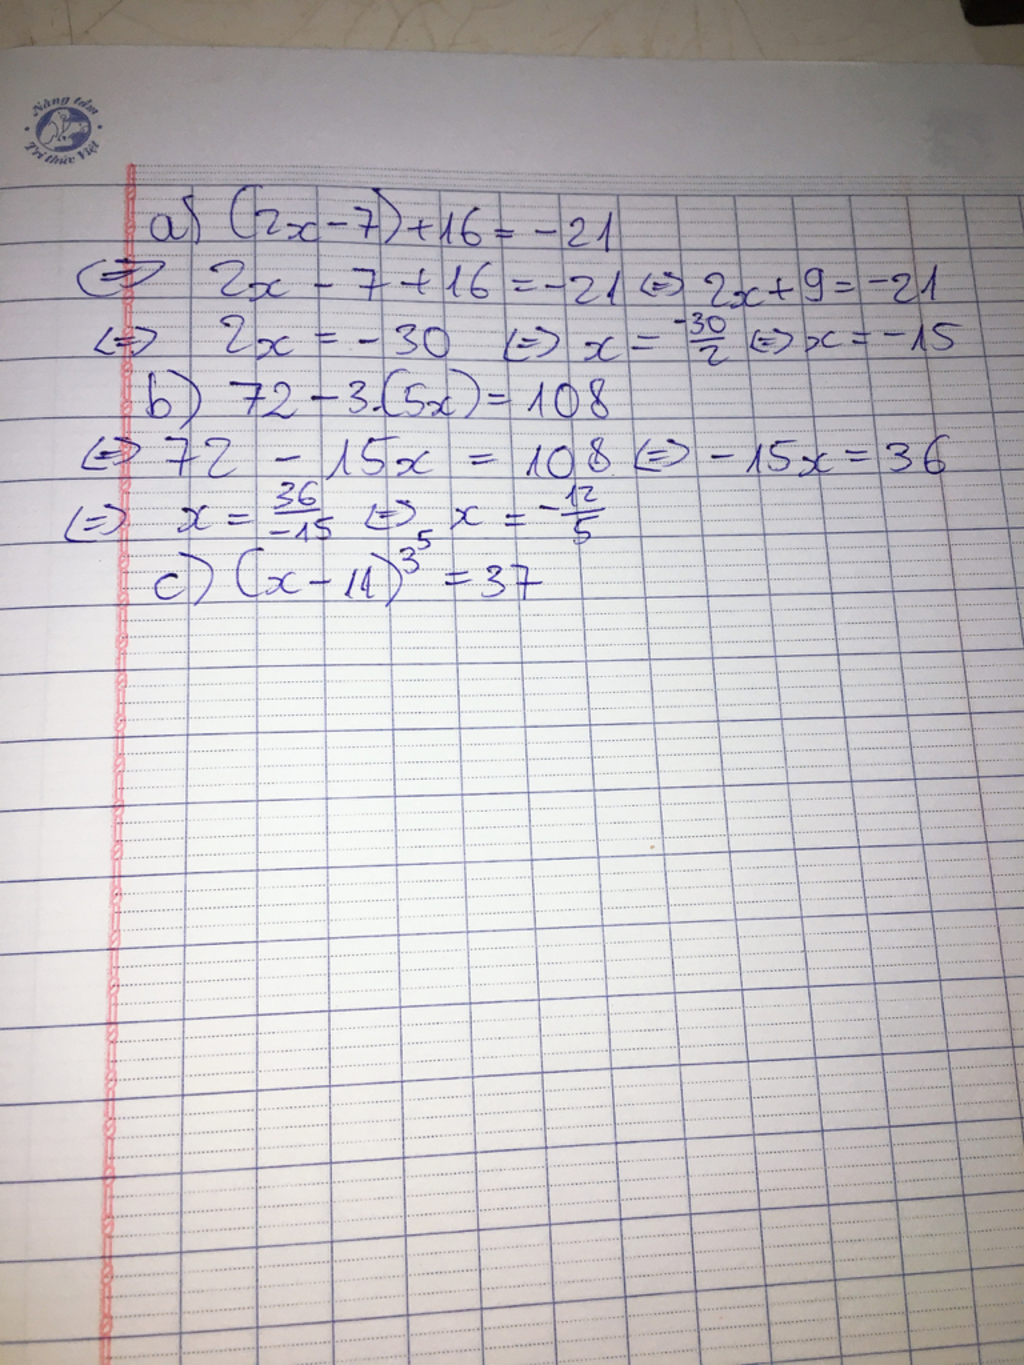 Nâng tầm
Tri thức Việt
a) (2x - 7) + 16 = -21
⇔ 2x - 7 + 16 = -21 ⇔ 2x + 9 = -21
⇔ 2x = -30 ⇔ x = -30/2 ⇔ x = -15
b) 72 - 3.(5x) = 108
⇔ 72 - 15x = 108 ⇔ -15x = 36
⇔ x = 36/-15 ⇔ x = -12/5
c) (x - 11)^3^5 = 37